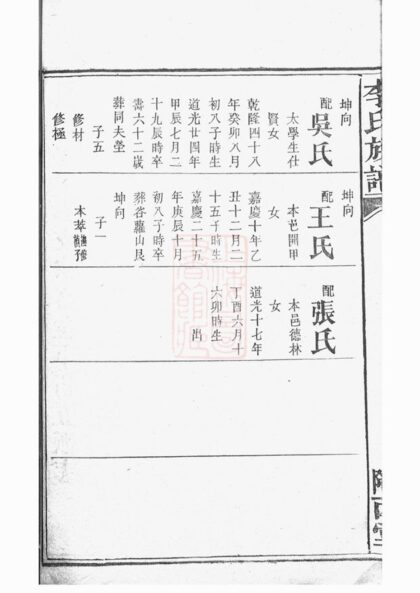 李氏族譜
坤向
配
吳氏
太學生仕
賢女
乾隆四十八
年癸卯八月
初八子時生
道光廿四年
甲辰七月二
十九辰時卒
壽六十二歲
葬同夫塋
子五
修材
修極
坤向
配
王氏
本邑開甲
女
嘉慶十年乙
丑十二月二
十五午時生
嘉慶二十五
年庚辰十月
初八子時卒
葬峇蘿山艮
坤向
子一
本萃
配
張氏
本邑德林
女
道光十七年
丁酉六月十
六卯時生
出